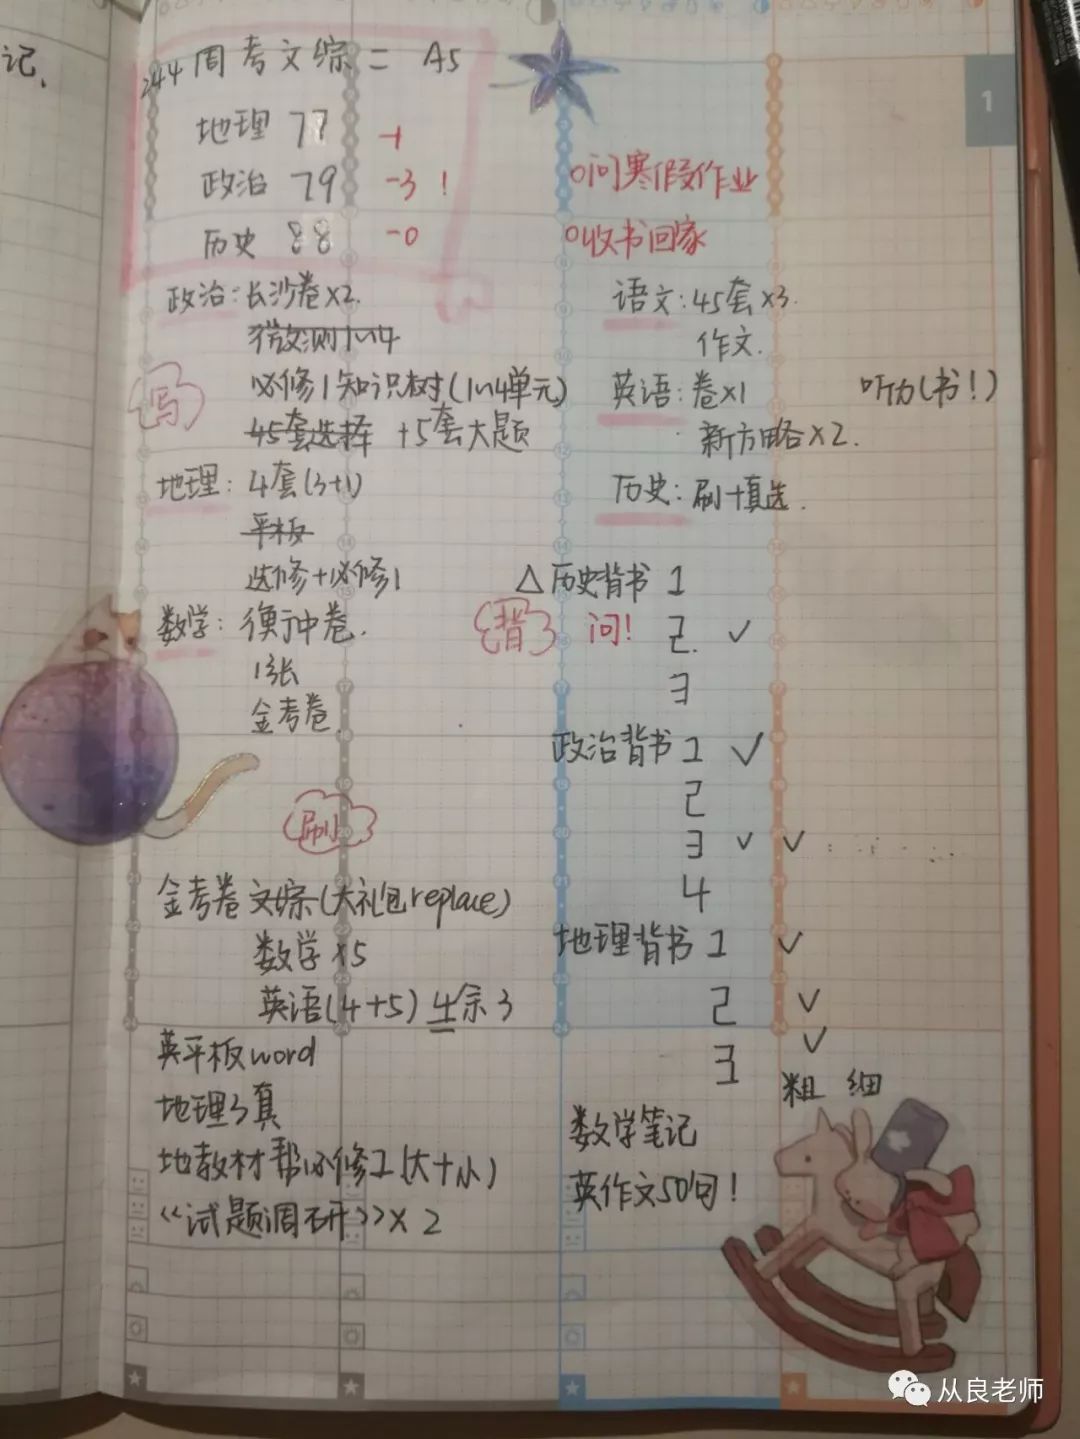 记、
244 周考文综二 A5
地理 77 -1
政治 79 -3 !
历史 88 -0
1
问寒假作业
收书回家
政治：长沙卷×2.
微测1~4
必修1知识树(1~4单元)
写
45套选择 +5套大题
地理：4套(3+1)
平板
选修+必修1
数学：衡中卷.
1张
金考卷
语文：45套×3.
作文.
英语：卷×1 听力(书!)
新方略×2.
历史：刷十真选.
△历史背书 1
背 问! 2. ✓
3
政治背书 1 ✓
2
3 ✓ ✓
4
地理背书 1 ✓
2 ✓
3 ✓
粗 细
数学笔记
英作文50句!
刷
金考卷 文综(大礼包replace)
数学×5
英语(4+5) 4余3
英平板word
地理3真
地教材帮必修2(大+小)
《试题调研》×2
从良老师